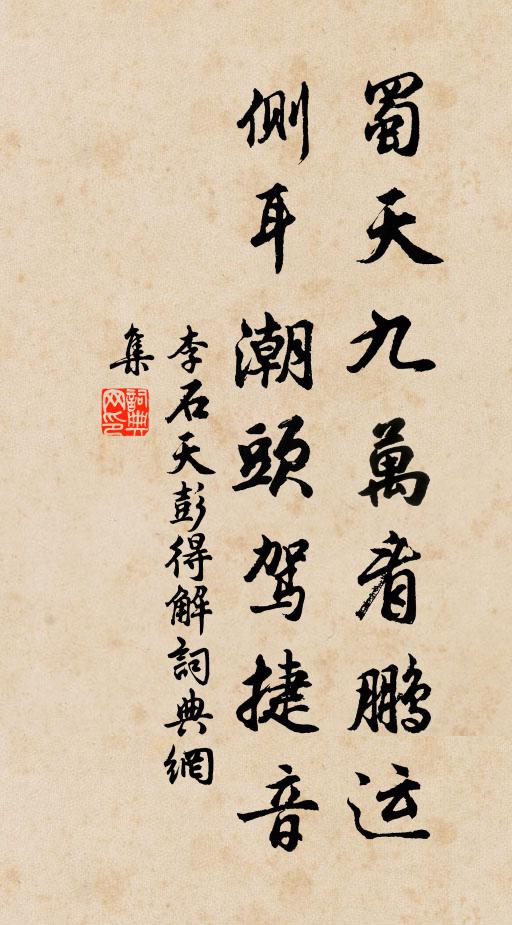 蜀天九萬看鹏运
側耳潮頭駕捷音
李石天彭得解詞典網
集
詞典
网印